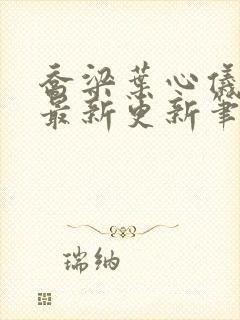 乔梁叶心仪
最新更新笔
瑞纳